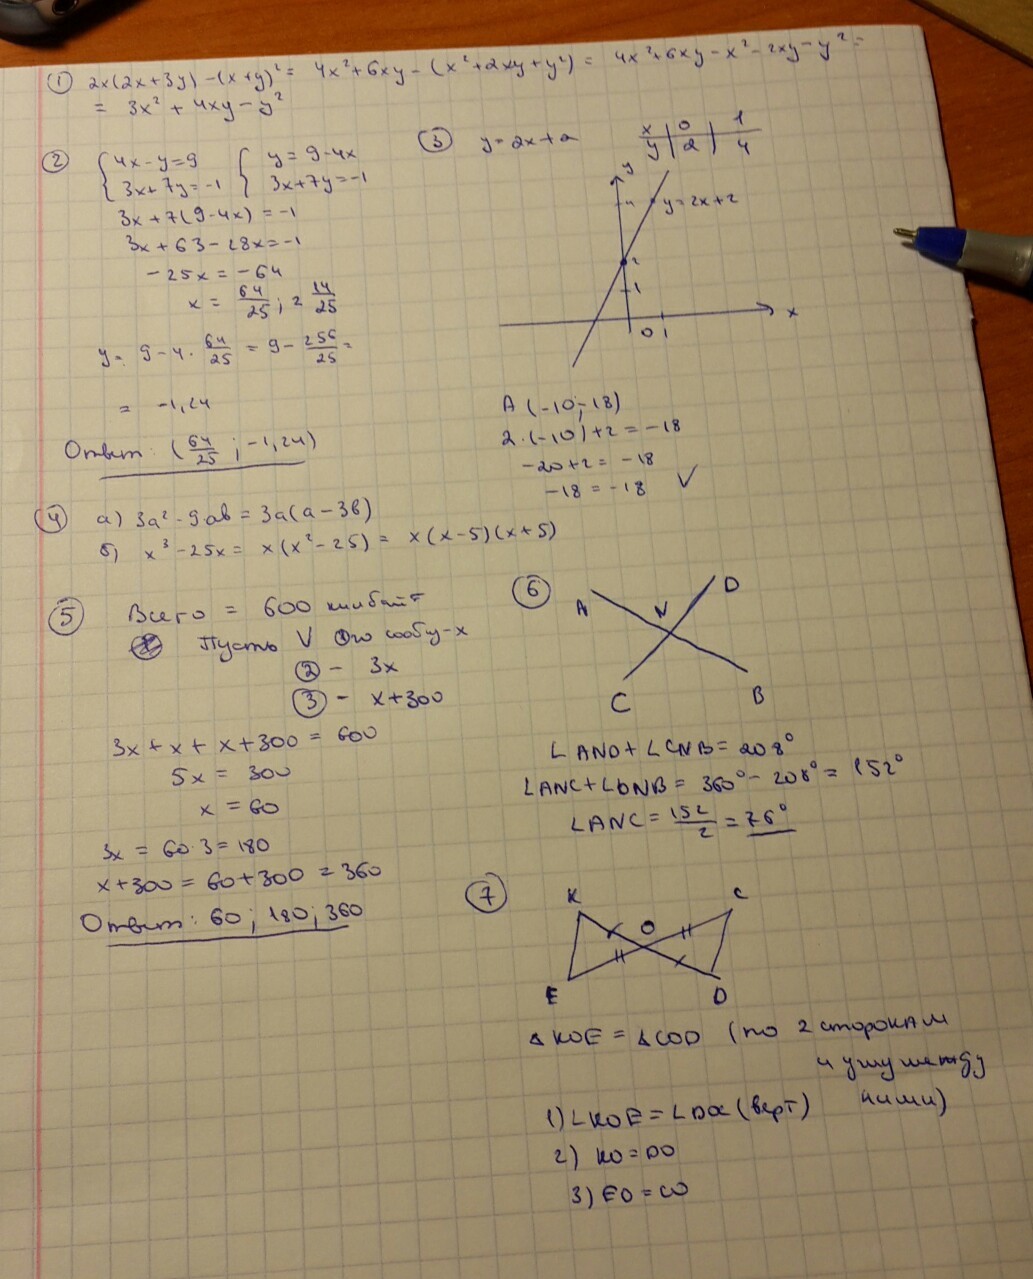 ① 2x(2x+3y) -(x+y)² = 4x²+6xy - (x²+2xy+y²) = 4x²+6xy - x² - 2xy - y² =
= 3x² + 4xy - y²
② { 4x-y=9 { y = 9-4x
3x+7y=-1 3x+7y=-1
3x+7(9-4x) = -1
3x+63-28x=-1
-25x = -64
x = 64/25 ; 2 14/25
y= 9-4· 64/25 = 9- 256/25 =
= -1,24
Ответ: (64/25 ; -1,24)
③ y=2x+2
x | 0 | 1
y | 2 | 4
y
4
y=2x+2
2
1
0 1
x
A (-10;-18)
2·(-10)+2 = -18
-20+2 = -18
-18 = -18 V
④ а) 3a²-9ab = 3a(a-3b)
б) x³-25x = x(x²-25) = x(x-5)(x+5)
⑤ Всего = 600 кмибайт
Пусть V ①го сообщ-x
② - 3x
③ - x+300
3x + x + x+300 = 600
5x = 300
x = 60
3x = 60·3=180
x+300 = 60+300 = 360
Ответ: 60; 180; 360
⑥
A
D
N
C
B
∠AND+∠CNB= 208°
∠ANC+∠DNB = 360°- 208° = 152°
∠ANC = 152/2 = 76°
⑦
K
C
O
E
D
△KOE = △COD (по 2 сторонам
и углу между
ними)
1) ∠KOE = ∠DOC (верт)
2) KO=DO
3) EO=CO